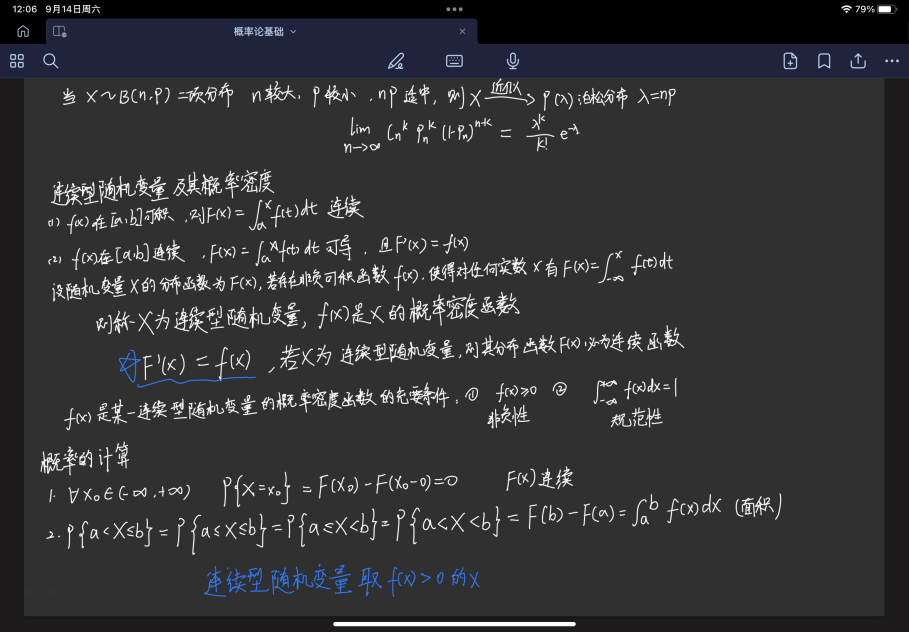 12:06 9月14日周六
79%
概率论基础
当 X~B(n,p) 二项分布 n较大, p较小, np适中, 则 X 近似→ P(λ) 泊松分布 λ=np
lim n→∞ Cₙᵏ pₙᵏ (1-pₙ)ⁿ⁻ᵏ = λᵏ/k! e^-λ
连续型随机变量及其概率密度
(1) f(x)在[a,b]可积, 则F(x)=∫ₐˣ f(t)dt 连续
(2) f(x)在[a,b]连续, F(x)=∫ₐˣ f(t)dt 可导, 且F'(x)=f(x)
设随机变量X的分布函数为F(x), 若存在非负可积函数f(x), 使得对任何实数x有F(x)=∫₋∞ˣ f(t)dt
则称X为连续型随机变量, f(x)是X的概率密度函数
☆F'(x)=f(x), 若X为连续型随机变量, 则其分布函数F(x)必为连续函数
f(x)是某一连续型随机变量的概率密度函数的充要条件: ① f(x)≥0 ② ∫₋∞⁺∞ f(x)dx=1
非负性 规范性
概率的计算
1. ∀x₀∈(-∞,+∞) P{X=x₀}=F(x₀)-F(x₀-0)=0 F(x)连续
2. P{a<X≤b}=P{a≤X≤b}=P{a≤X<b}=P{a<X<b}=F(b)-F(a)=∫ₐᵇ f(x)dx (面积)
连续型随机变量取f(x)>0的x